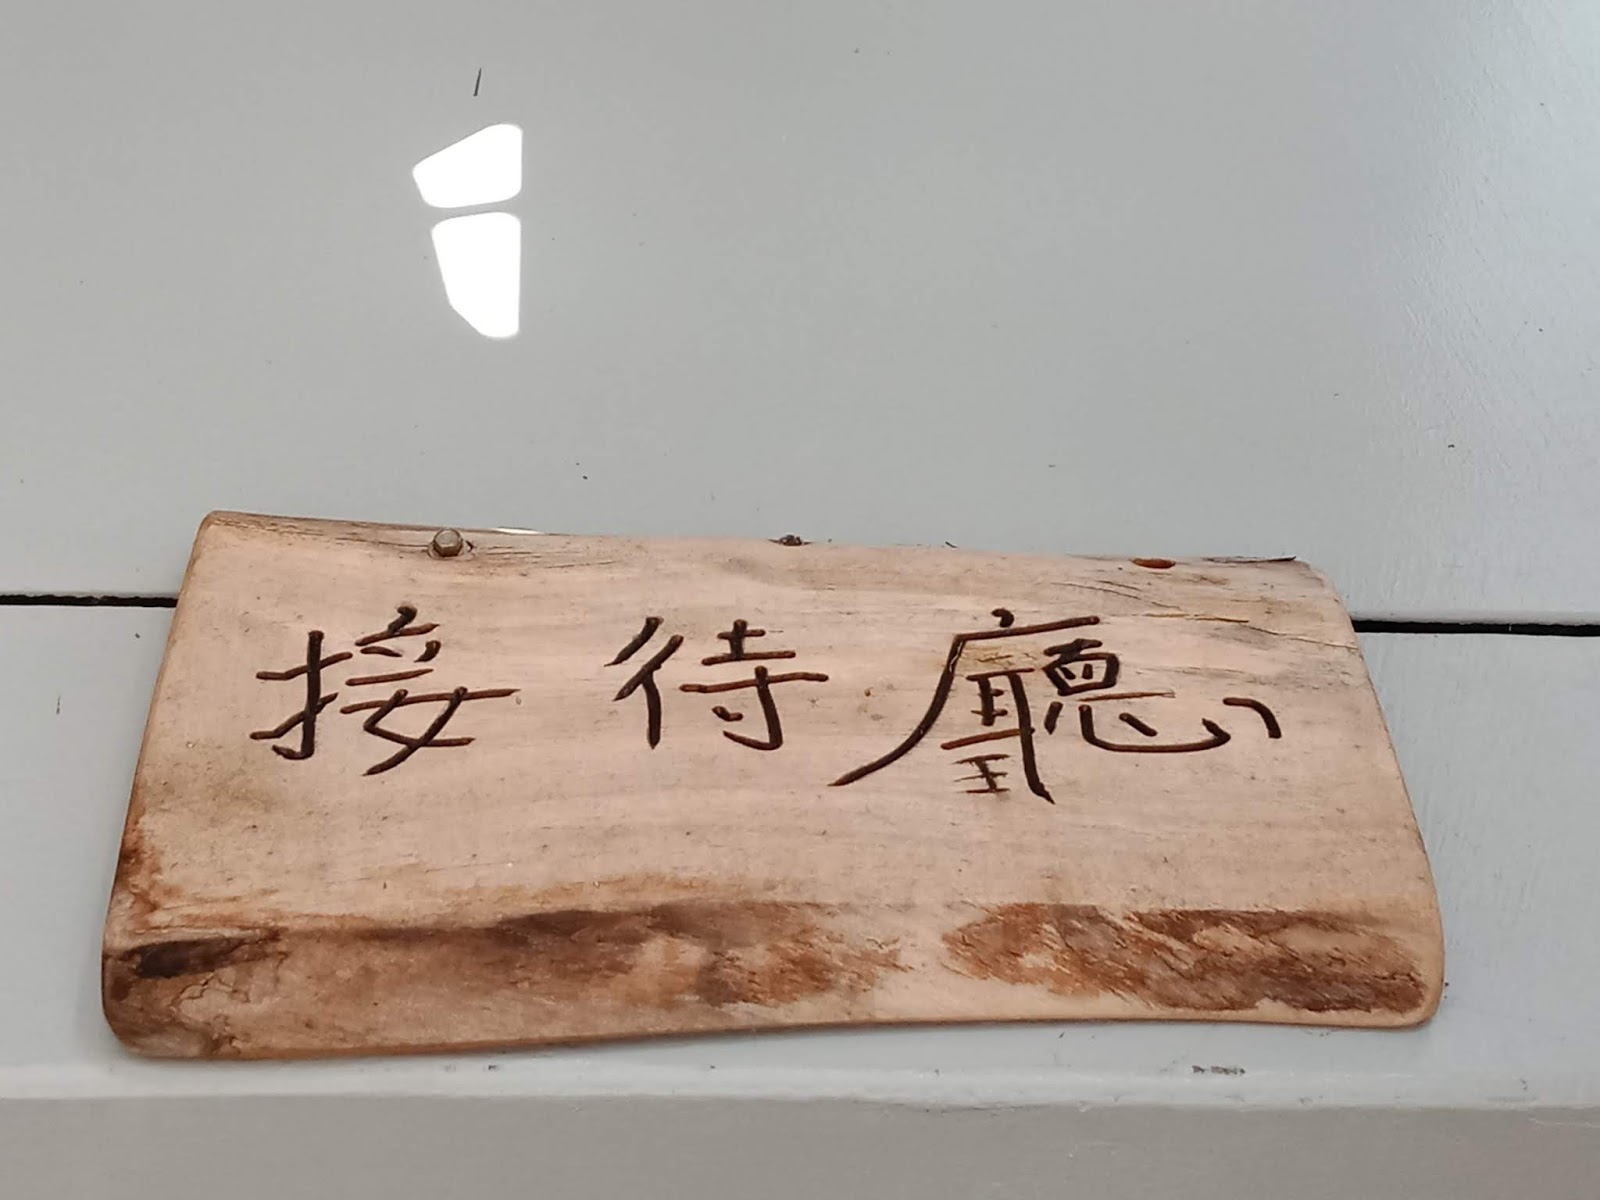 接待廳